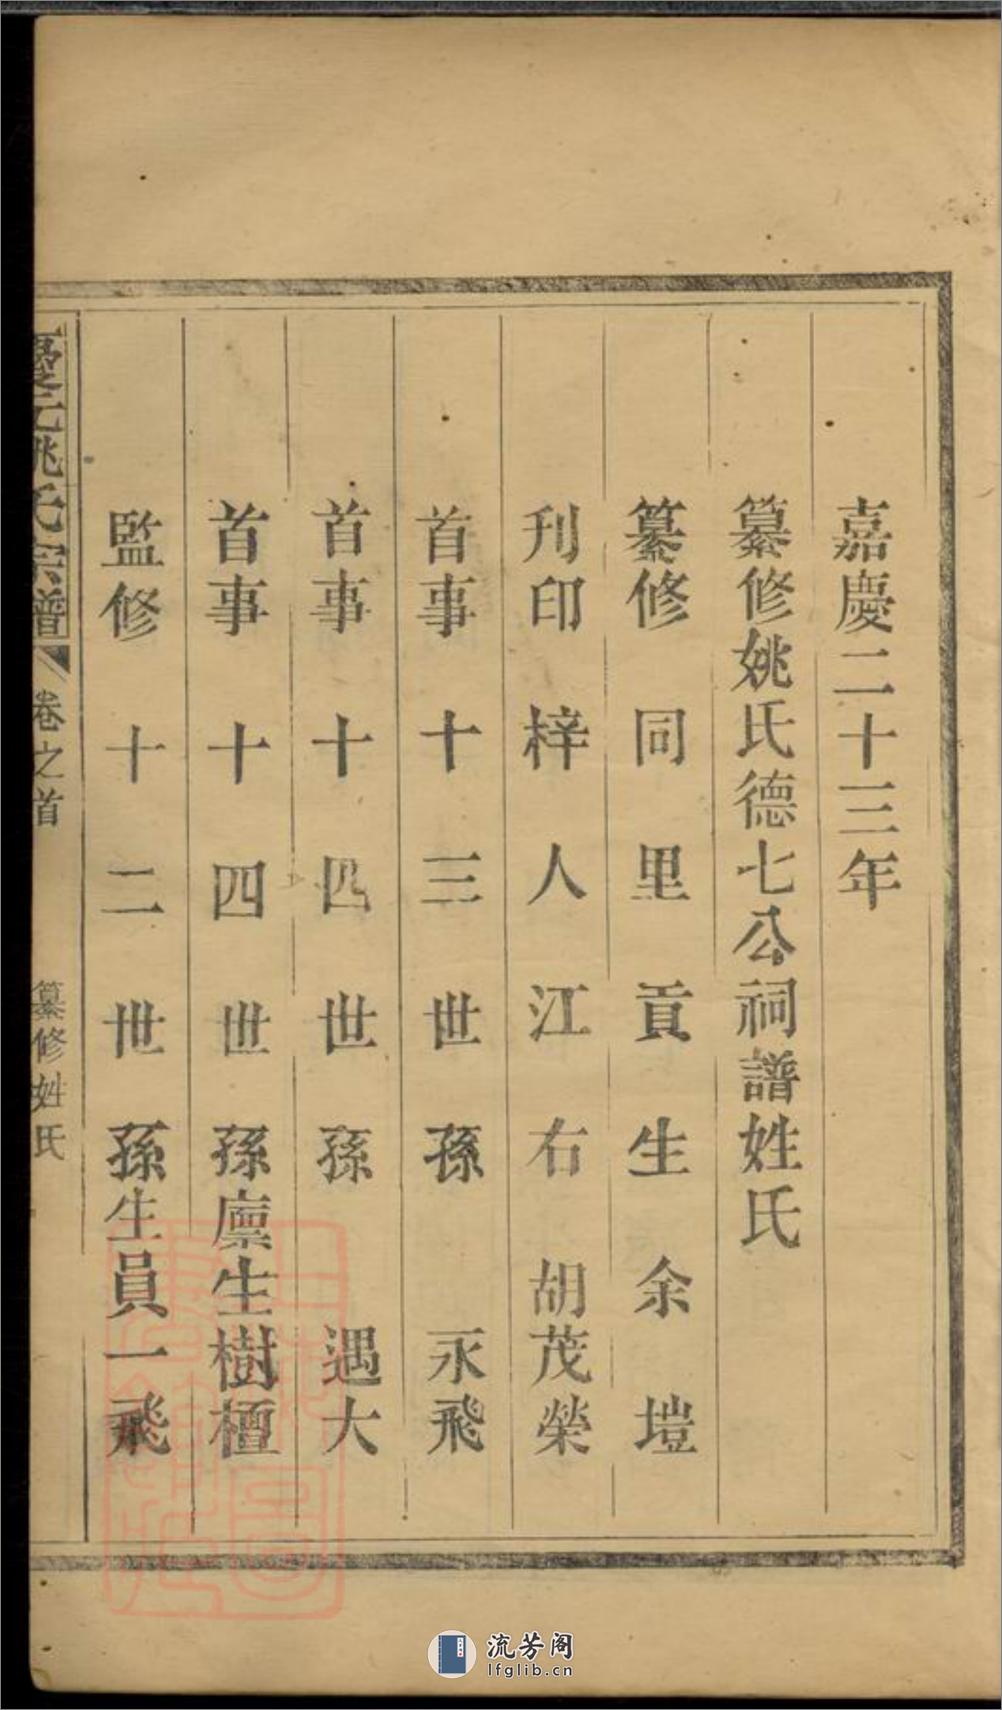 嘉慶二十三年
纂修姚氏德七公祠譜姓氏
纂修 同里貢生 余塏
刊印 梓人江右 胡茂榮
首事 十三世孫 永飛
首事 十四世孫 遇大
首事 十四世孫廪生樹檀
監修 十二世孫生員一飛
慶元姚氏宗譜 卷之首 纂修姓氏
流芳阁
lfglib.cn